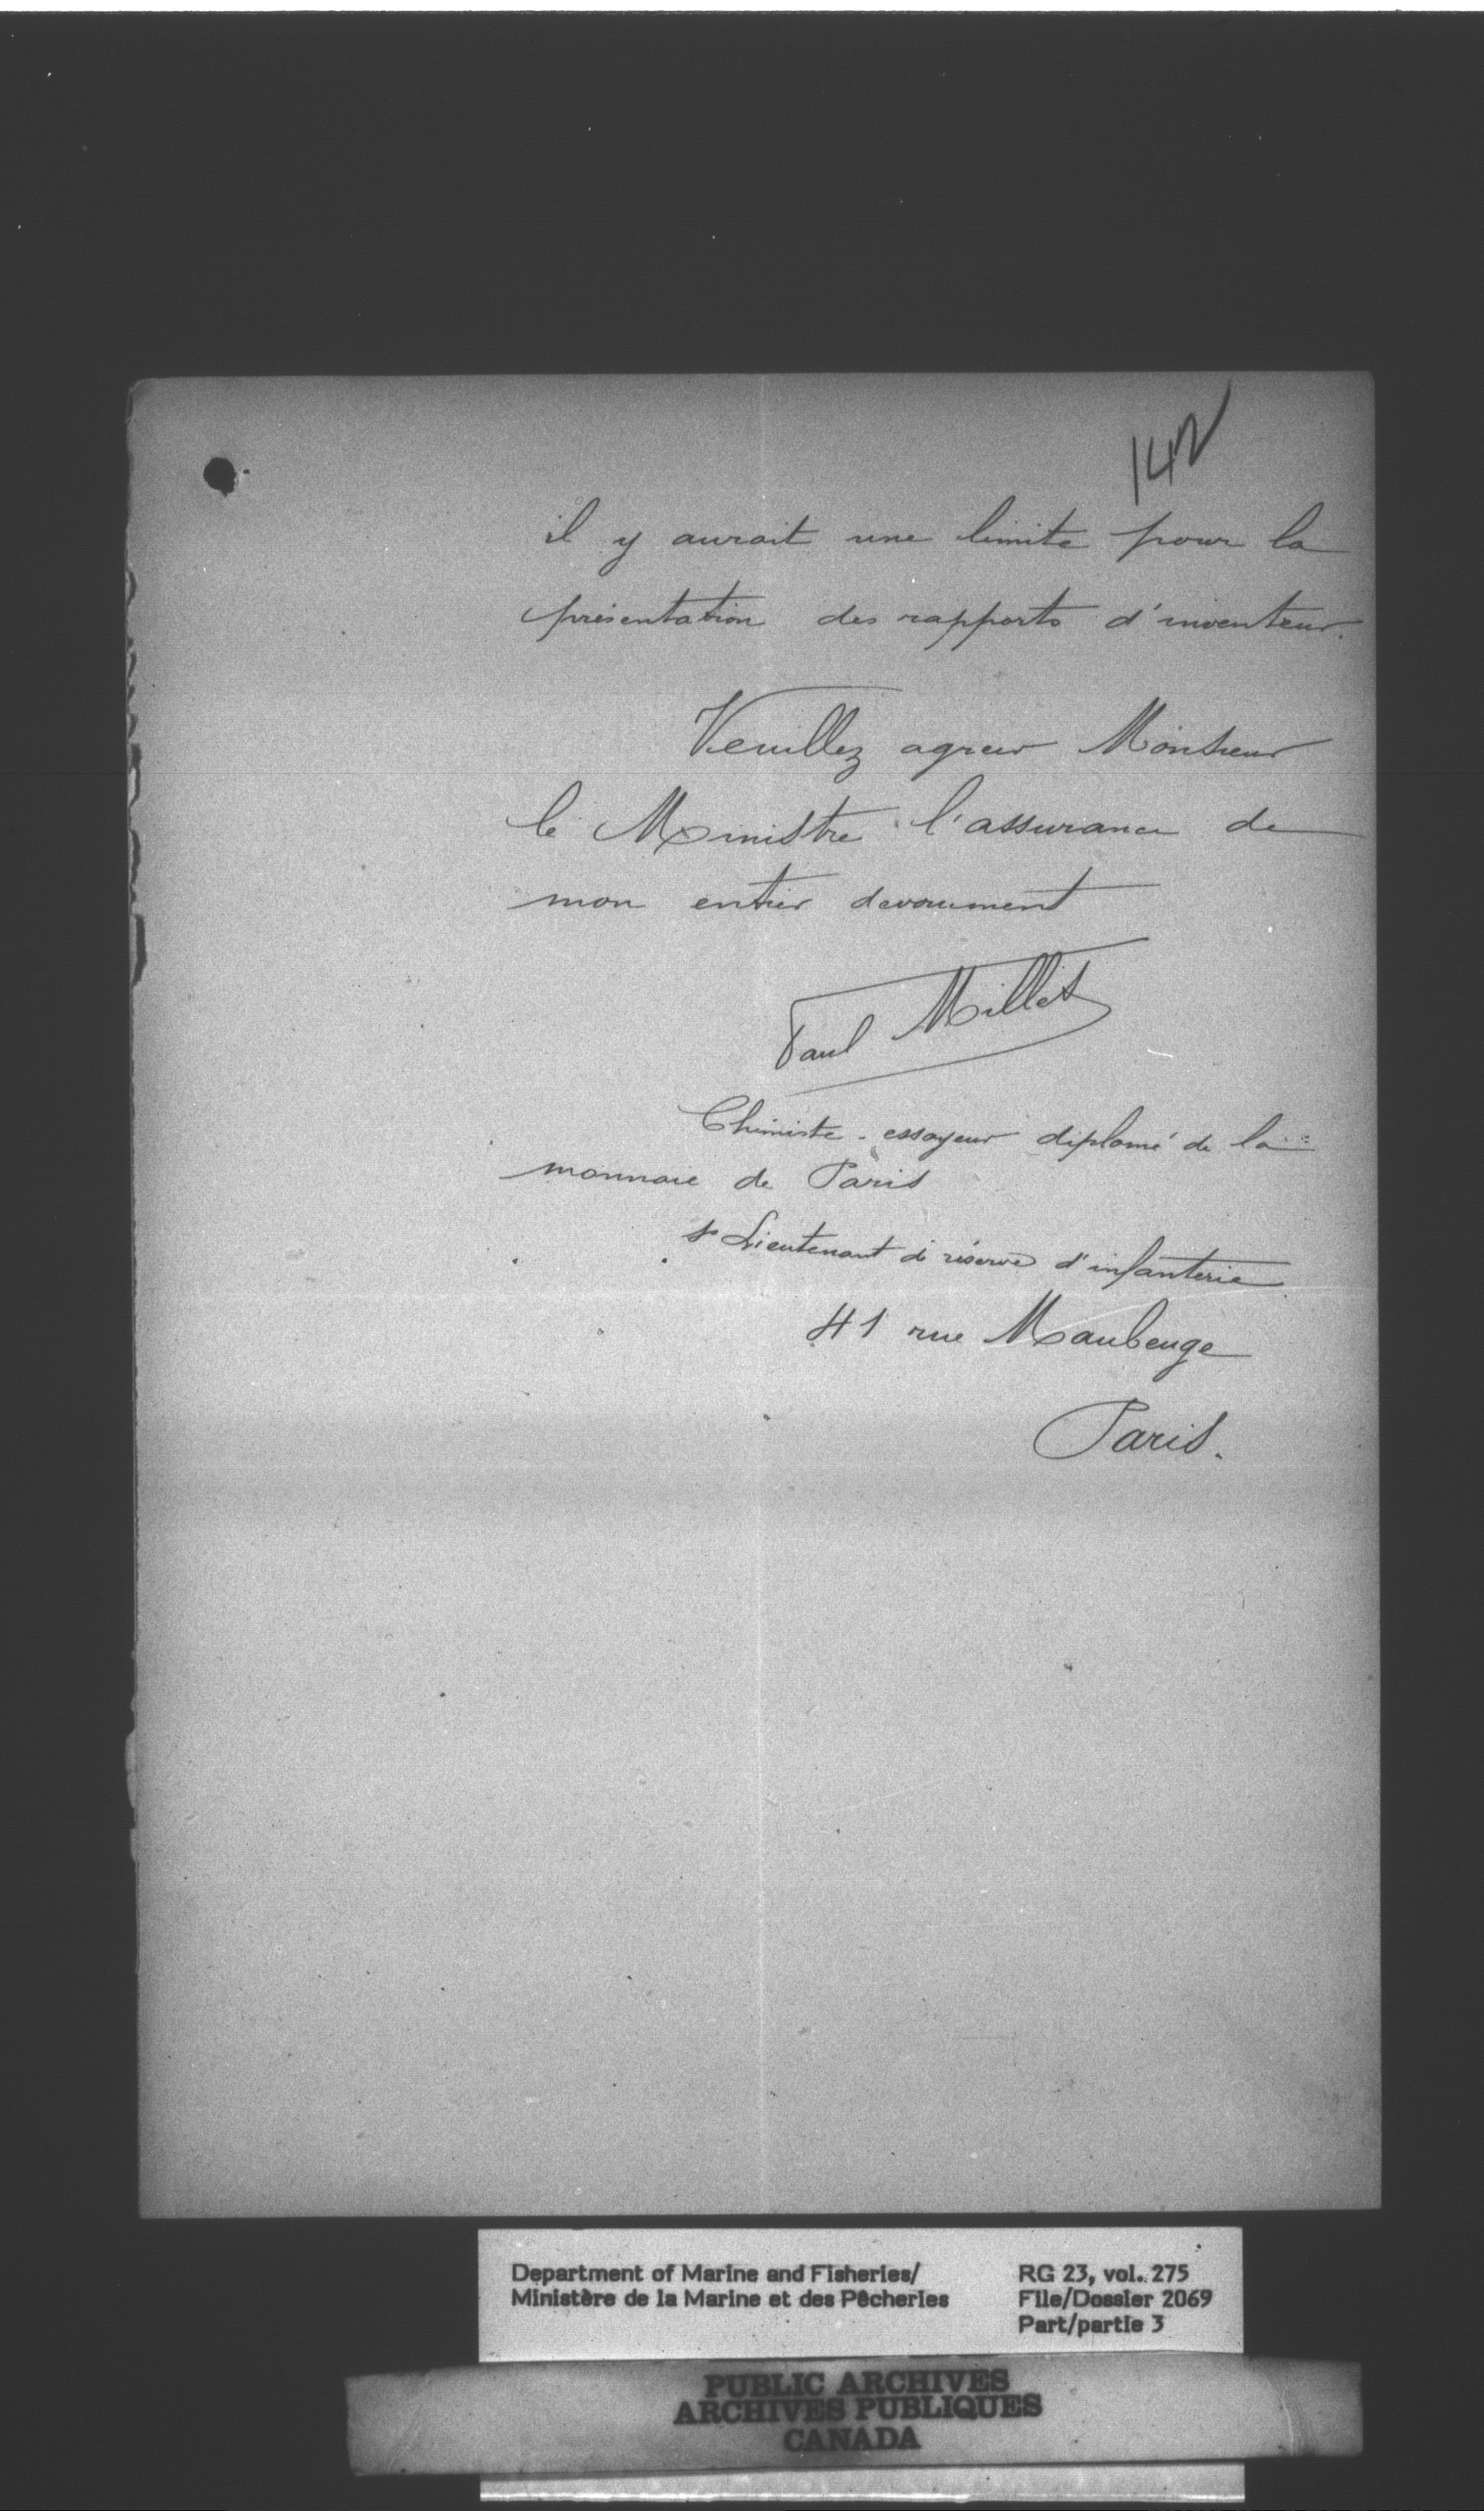 142
il y aurait une limite pour la
présentation des rapports d'inventeur.
Veuillez agreer Monsieur
le Ministre l'assurance de
mon entier devouement
Paul Millet
Chimiste-essayeur diplomé de la
monnaie de Paris
s/ Lieutenant de réserve d'infanterie
41 rue Maubeuge
Paris.
Department of Marine and Fisheries/ RG 23, vol. 275
Ministère de la Marine et des Pêcheries File/Dossier 2069
Part/partie 3
PUBLIC ARCHIVES
ARCHIVES PUBLIQUES
CANADA